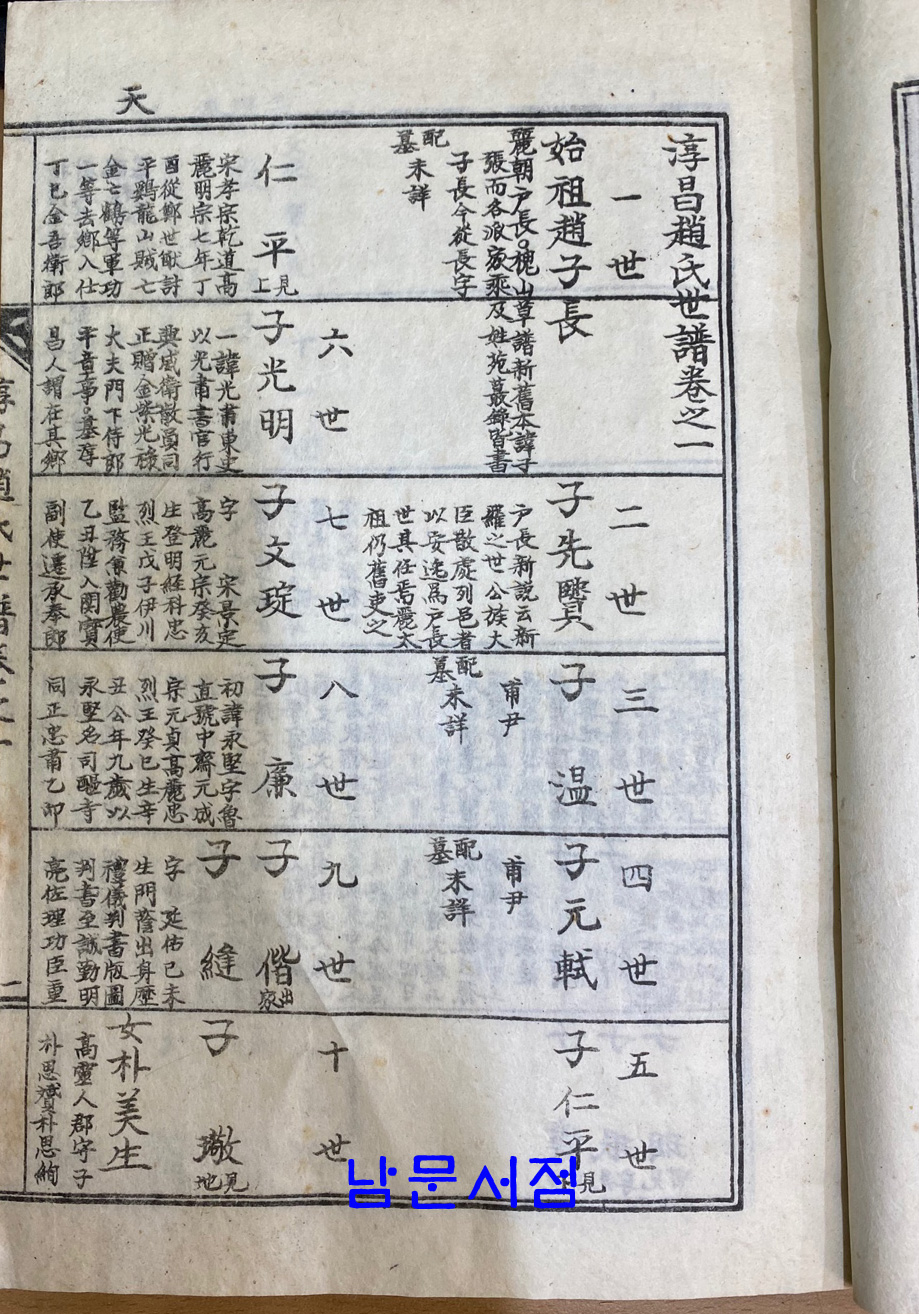 天
淳昌趙氏世譜卷之一
一世
始祖趙子長
麗朝戶長。槐山草譜新舊本諱子
張而各派家乘及姓苑叢錄皆書
子長今從長字
配
墓
未詳
二世
子先賢
戶長新說云新
羅之世公族大
臣散處列邑者
以安逸爲戶長
世其任焉麗太
祖仍舊吏之
三世
子溫
甫尹
配
墓
未詳
四世
子元軾
甫尹
配
墓
未詳
五世
子仁平
見
仁平
見上
宋孝宗乾道高
麗明宗七年丁
酉從鄭世猷討
平鷄龍山賊七
金亡鶴等軍功
一等去鄕入仕
丁巳金吾衛郎
六世
子光明
一諱光甫東史
以光甫書官行
興威衛散員同
正贈金紫光祿
大夫門下侍郎
平章事。墓淳
昌人謂在其鄕
七世
子文琁
字 宋景定
高麗元宗癸亥
生登明經科忠
烈王戊子伊川
監務兼勸農使
乙丑陞入闕寶
副使遷承奉郎
八世
子廉
初諱永堅字魯
直號中齋元成
宗元貞高麗忠
烈王癸巳生辛
丑公年九歲以
永堅名司醞寺
同正忠肅乙卯
九世
子偕
出家
子縫
字 延佑己未
生門蔭出身歷
禮儀判書版圖
判書至誠勤明
亮佐理功臣重
十世
子璥
見地
女朴美生
高靈人郡守子
朴思賁朴思絢
남문서점